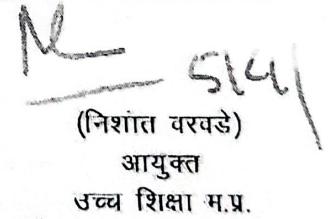 5/4/
(निशांत वरवडे)
आयुक्त
उच्च शिक्षा म.प्र.